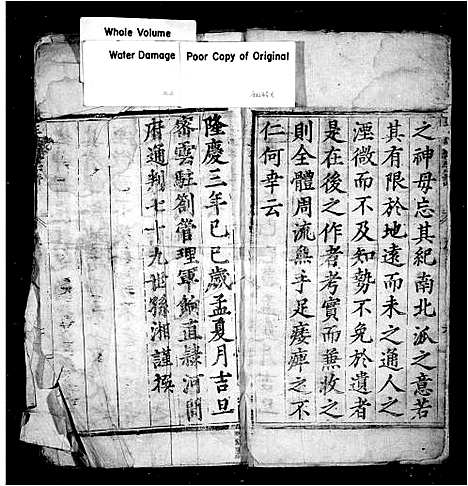 Whole Volume
Water Damage
Poor Copy of Original
之神毋忘其紀南北派之意若
其有限於地遠而未之通人之
湮微而不及知勢不免於遺者
是在後之作者考實而兼收之
則全體周流無手足痿痺之不
仁何幸云
隆慶三年己巳歲孟夏月吉旦
密雲駐劄管理軍餉直隸河間
府通判七十九世孫湘謹撰